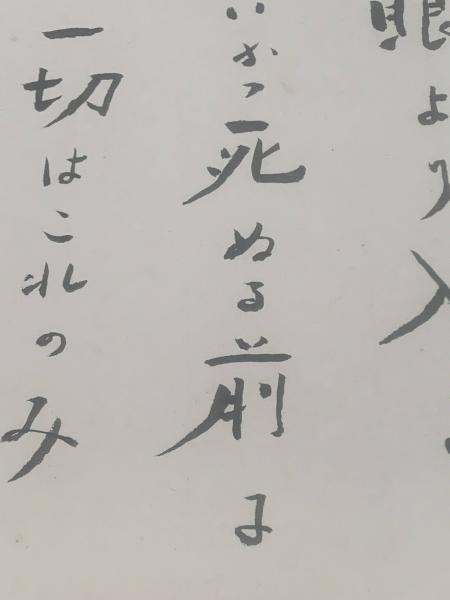 眼より入
いかつ死ぬる前に
一切はこれのみ